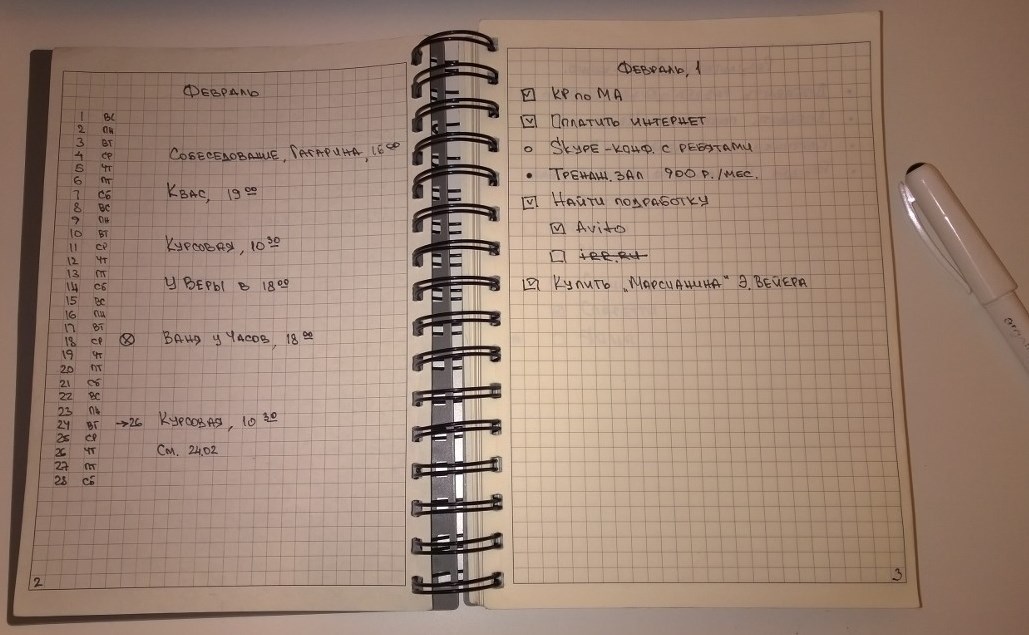 Февраль
1 вс
2 пн
3 вт
4 ср Собеседование, Гагарина, 16 00
5 чт
6 пт
7 сб Квас, 19 00
8 вс
9 пн
10 вт
11 ср Курсовая, 10 30
12 чт
13 пт
14 сб У Веры в 18 00
15 вс
16 пн
17 вт
18 ср Ваня у Часов, 18 00
19 чт
20 пт
21 сб
22 вс
23 пн
24 вт →26 Курсовая, 10 30
25 ср
26 чт См. 24.02
27 пт
28 сб
2
Февраль, 1
КР по МА
Оплатить интернет
Skype-конф. с ребятами
Тренаж. зал 900 р./мес.
Найти подработку
Avito
irr.ru
Купить „Марсианина" Э. Вейера
3